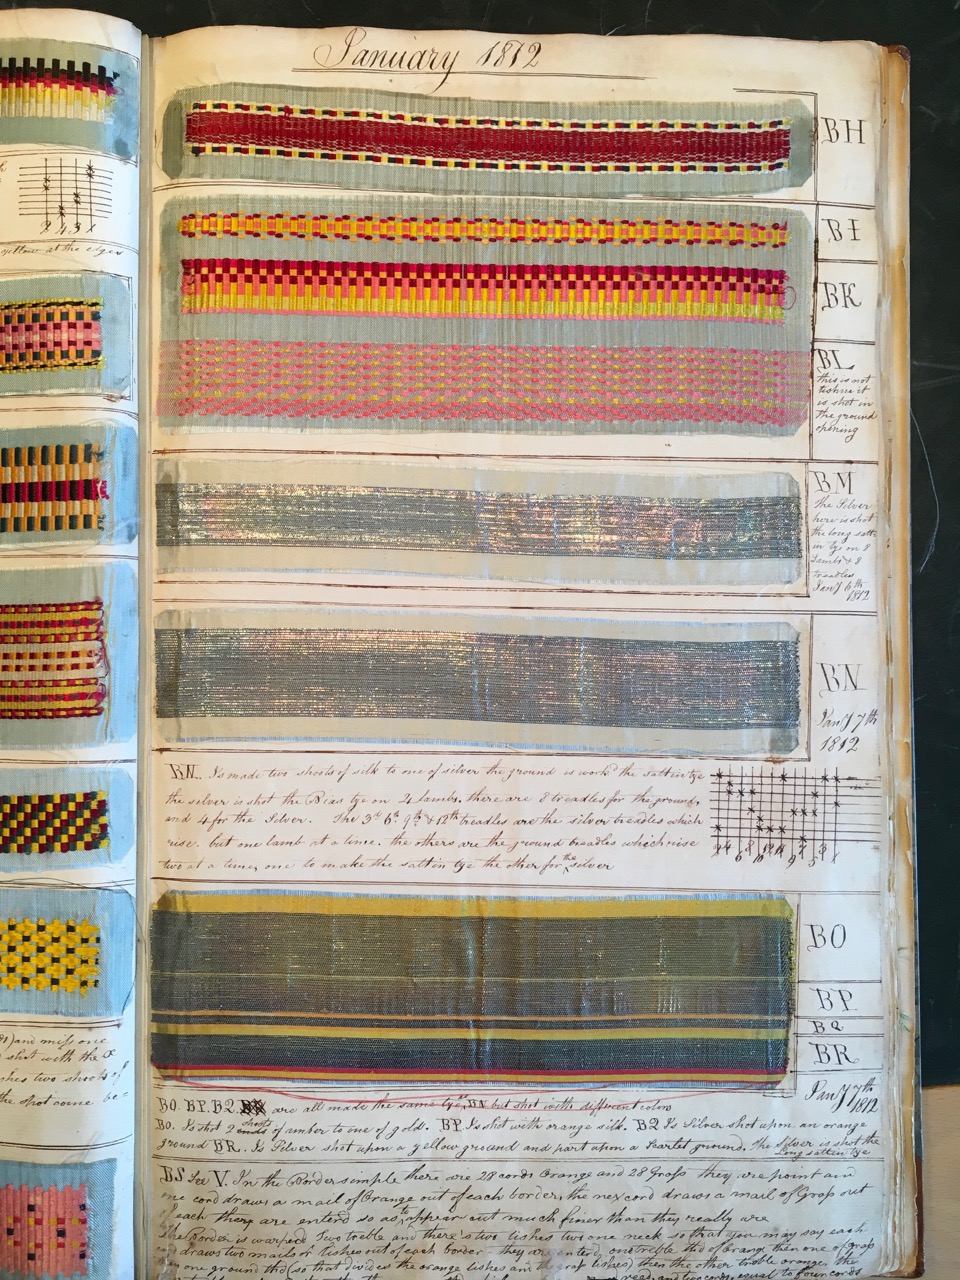 January 1812
BH
BI
BK
BL
this is not
tishue it
is shot in
the ground
opening
BM
the Silver
here is shot
the long satt-
in tye on 8
Lambs & 8
treadles
Jany 6th
1812
BN
Jany 7th
1812
BN. Is made two shoots of silk to one of silver the ground is work'd the sattin tye
the silver is shot the Bias tye on 4 lambs, there are 8 treadles for the ground,
and 4 for the Silver. The 3rd 6th 9th & 12th treadles are the silver treadles which
rise but one lamb at a time. the others are the ground treadles which rise
two at a time, one to make the sattin tye the other for the silver
BO
BP
BQ
BR
Jany 7th 1812
BO. BP. BQ. are all made the same tye as BN but shot with different colors
BO. Is shot 2 shoots of amber to one of gold. BP Is shot with orange silk. BQ Is Silver shot upon an orange
ground BR. Is Silver shot upon a yellow ground and part upon a Scarlet ground, the Silver is shot the
Long sattin tye
BS See V. In the Border simple there are 28 cords Orange and 28 Grass they are point and
one cord draws a mail of Orange out of each border, the next cord draws a mail of Grass out
of each they are enter'd so as to appear cut much finer than they really are
The Border is warped Two treble and there's two tishes two one neck so that you may say each
cord draws two mails or tishes out of each border they are enter'd, one treble thd of Orange then one of grass
yellow at the edges
and miss one
shot with the
two shoots of
the spot come be-